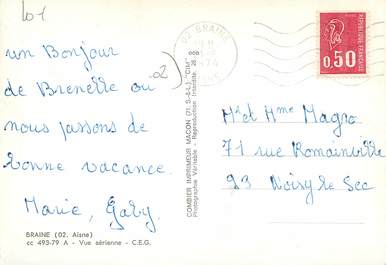 101
un Bonjour
de Brenelle ou 02)
nous passons de
bonne vacance.
Marie, Gaby.
BRAINE (02. Aisne)
cc 493-79 A - Vue aérienne - C.E.G.
COMBIER IMPRIMEUR MACON (71. S.-&-L.) "CIM"
Photographie Véritable - Reproduction Interdite.
02 BRAINE
RÉPUBLIQUE FRANÇAISE
0,50
Mr et Mme Magro
71 rue Romainville
93 Noisy le Sec